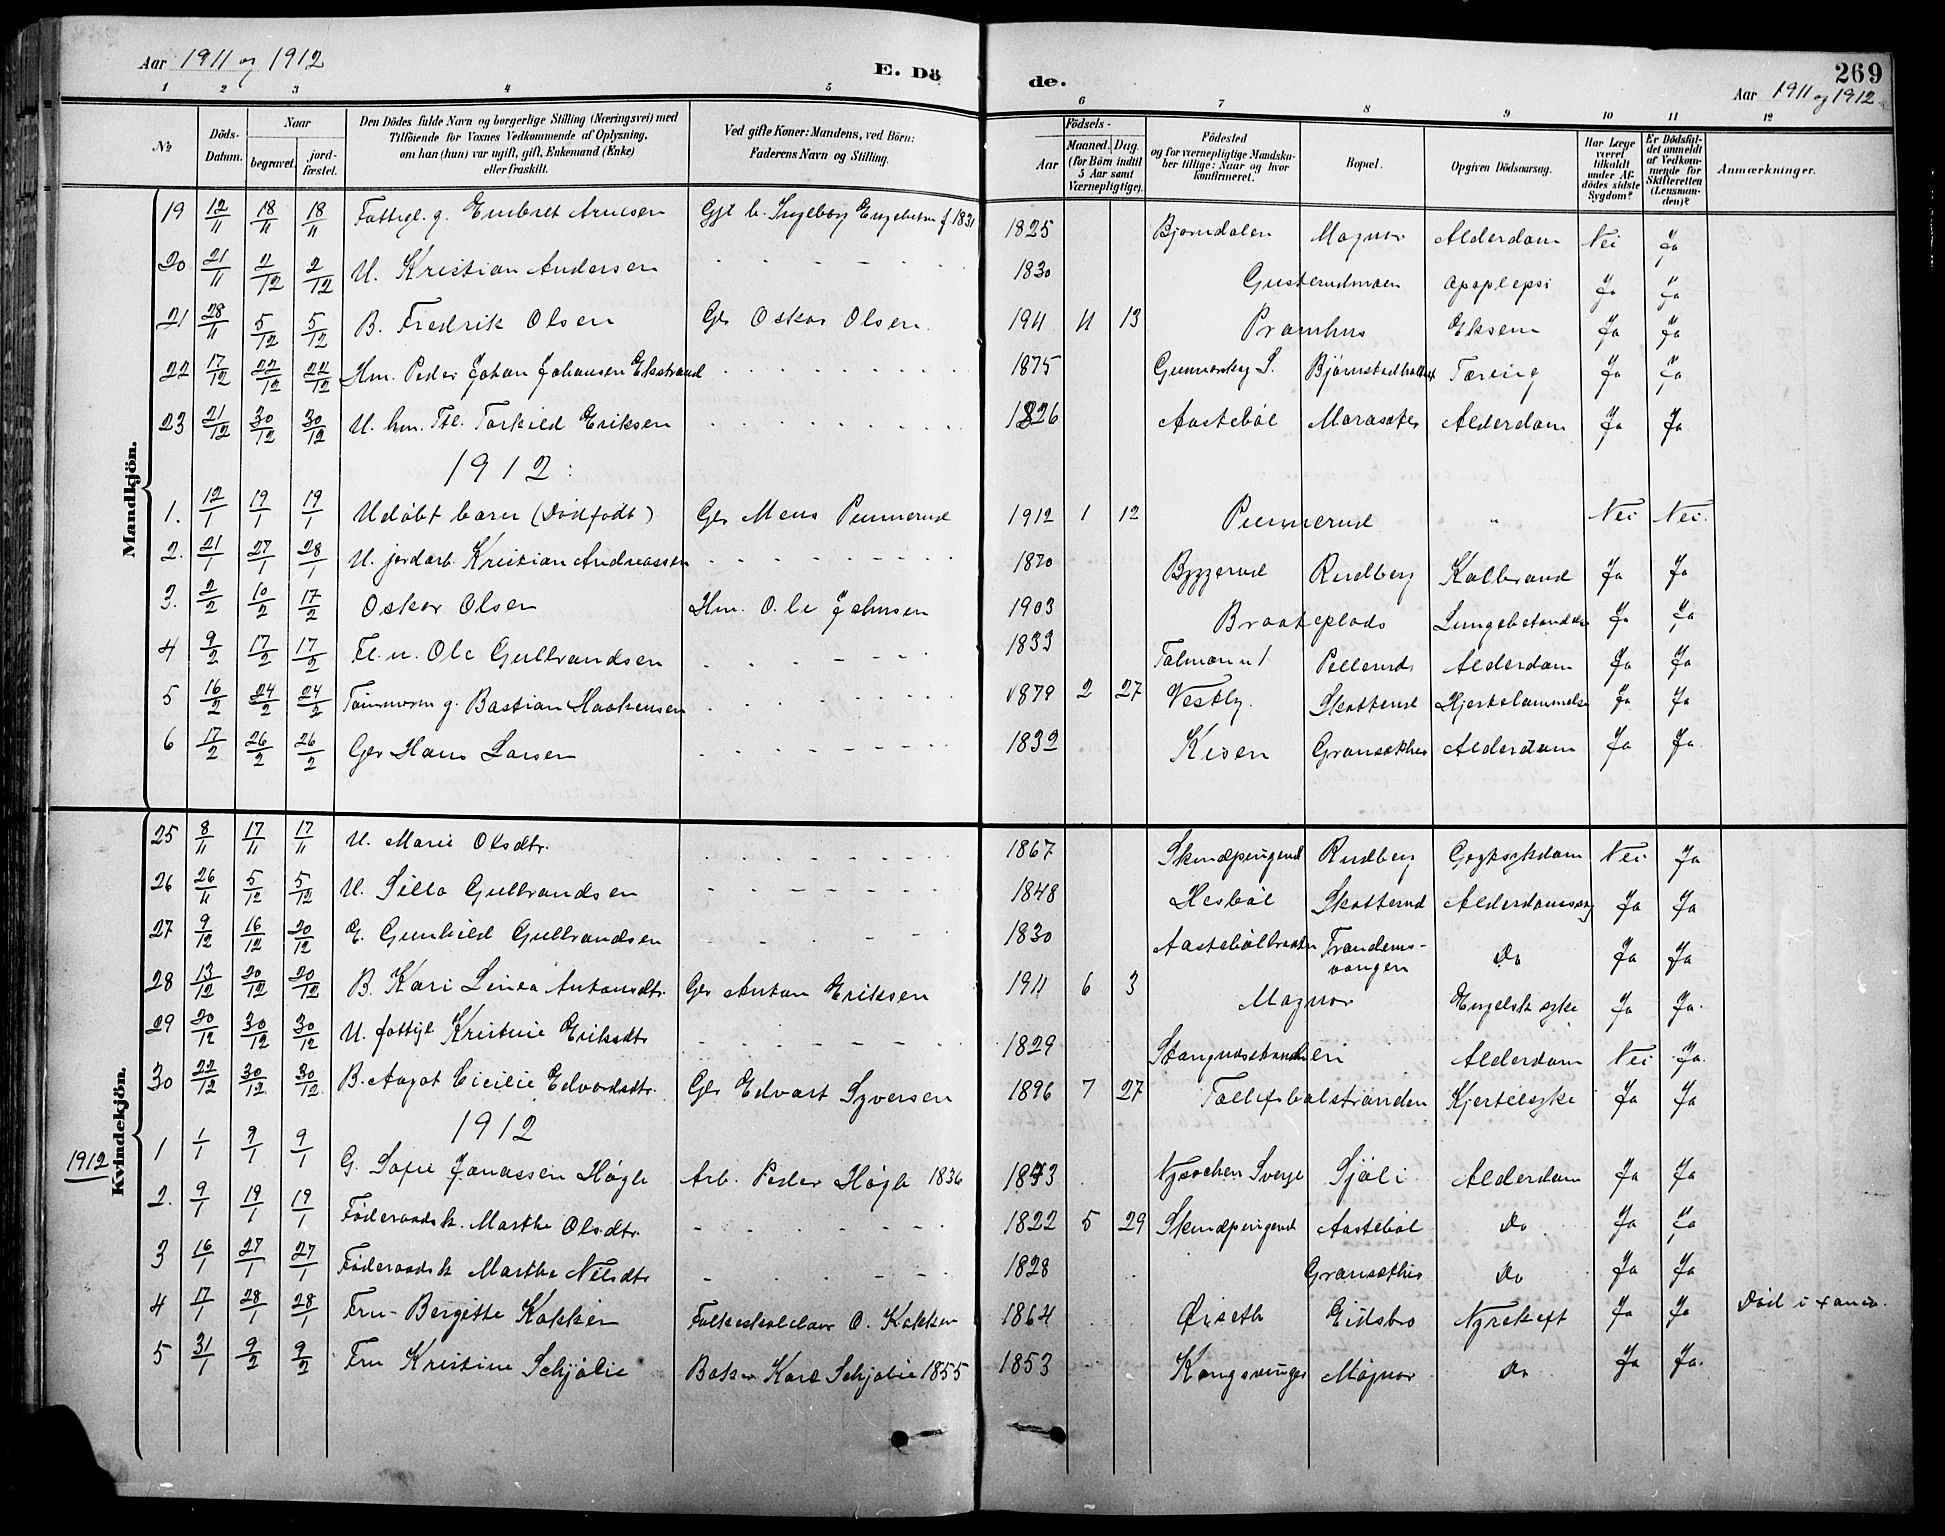 Aar 1911 og 1912
E. Dö de.
269
Aar 1911 og 1912
1 2 3 4 5 6 7 8 9 10 11 12
№ Döds-Datum. Naar begravet. jord-fæstet. Den Dödes fulde Navn og borgerlige Stilling (Næringsvei) med Tilföiende for Voxnes Vedkommende af Oplysning, om han (hun) var ugift, gift, Enkemand (Enke) eller fraskilt. Ved gifte Koner: Mandens, ved Börn: Faderens Navn og Stilling. Födsels- Aar Maaned. Dag. (for Börn indtil 5 Aar samt Værnepligtige). Födested og for værnepligtige Mandskaber tillige: Naar og hvor konfirmeret. Bopæl. Opgiven Dödsaarsag. Har Læge været tilkaldt under Afdödes sidste Sygdom? Er Dödsfaldet anmeldt af Vedkommende for Skifteretten (Lensmanden)? Anmærkninger.
Mandkjön.
19 12/11 18/11 18/11 Fattigl. g. Embret Arnesen Gjt b. Ingeborg Engebretsn f 1831 1825 Bjorndalen Magnor Alderdom Nei Ja
20 21/11 2/12 2/12 U. Kristian Andersen 1830 Gusterudmoen apoplepsi Ja Ja
21 28/11 5/12 5/12 B. Fredrik Olsen Gbr Oskar Olsen 1911 11 13 Pramhus Eksem Ja Ja
22 17/12 22/12 22/12 Hm. Peder Johan Johansen Ekstrand 1875 Gunnarskog S. Tæring Ja Ja
23 21/12 30/12 30/12 U. hm. Ftl. Torkild Eriksen 1826 Aastebøl Alderdom Ja Ja
1912:
1. 12/1 19/1 19/1 Udøbt barn (Dødfødt) Gbr Mens Punnerud 1912 1 12 Punnerud " Nei Nei.
2. 21/1 27/1 28/1 U. jordarb. Kristian Andreassen 1870 Byggerud Rudberg Kolbrand Ja Ja
3. 2/2 10/2 17/2 Oskar Olsen Hm. Ole Johnsen 1903 Braateplads Lungebetændelse Ja Ja
4 9/2 17/2 17/2 Fl. u. Ole Gulbrandsen 1833 Pellerud Alderdom Ja Ja
5 16/2 24/2 24/2 Tømmerm g. Bastian Haakensen 1879 2 27 Vestby. Skotterud Hjertelammelse Ja Ja
6 17/2 26/2 26/2 Gbr Hans Larsen 1832 Kisen Gransæther Alderdom Ja Ja
Kvindekjön.
25 8/11 17/11 17/11 U. Marie Olsdtr. 1867 Skindpungrud Rudberg Nei Ja
26 26/11 5/12 5/12 U. Silla Gulbrandsen 1848 Hesbøl Skotterud Alderdomssvag Ja Ja
27 9/12 16/12 20/12 E. Gunhild Gulbrandsen 1830 Aastebølbraaten Do Ja Ja
28 13/12 20/12 20/12 B. Kari Linea Antonsdtr. Gbr Anton Eriksen 1911 6 3 Magnor Engelsk syke Ja Ja.
29 20/12 30/12 30/12 U. fattigl Kristine Eriksdtr 1829 Alderdom Nei Ja.
30 22/12 30/12 30/12 B. Aagot Cicilie Edvardsdtr. Gbr Edvart Syversen 1896 7 27 Tollefsbølstranden Kjertelsyke Ja Ja
1912
1912
1 1/1 9/1 9/1 G. Sofie Jonassen Høgli Arb. Peder Høgli 1836 1843 Sjøli Alderdom Ja Ja
2. 9/1 19/1 19/1 Føderaadsk. Marthe Olsdtr. 1822 5 29 Skindpungrud Aastebøl Do Ja Ja
3 16/1 27/1 27/1 Føderaadsk Marthe Nilsdtr 1828 Gransæther Do Ja Ja
4 17/1 28/1 28/1 Fru Bergitte Kokkin Folkeskolelærer O. Kokkin 1864 Øiseth Eidsbro Nyrekræft Ja Ja Død i Xania.
5 31/1 9/2 9/2 Fru Kristine Schjølie Baker Karl Schjølie 1855 1853 Kongsvinger Magnor Do Ja Ja.